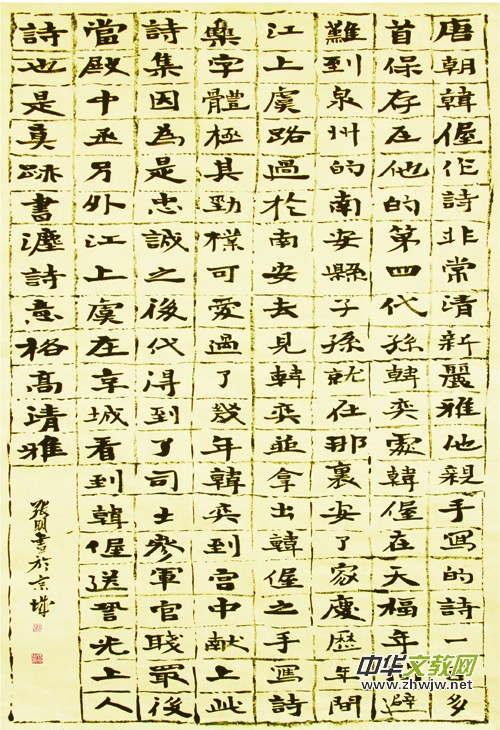 唐朝韓偓作詩非常清新麗雅他親手寫的詩一百多
首保存在他的第四代孫韓奕處韓偓在天福年避
難到泉州的南安縣子孫就在那裏安了家慶歷年間
江上虞路過於南安去見韓奕並拿出韓偓之手寫詩
字體極其勁樸可愛過了數年韓奕到宮中献上此
詩集因為是忠誠之後代得到了司士參軍官職最後
當殿中丞另外江上虞在京城看到韓偓送誓光上人
詩也是真跡書灋詩意格高清雅
張明書於京城
中华文教网
www.zhwjw.net